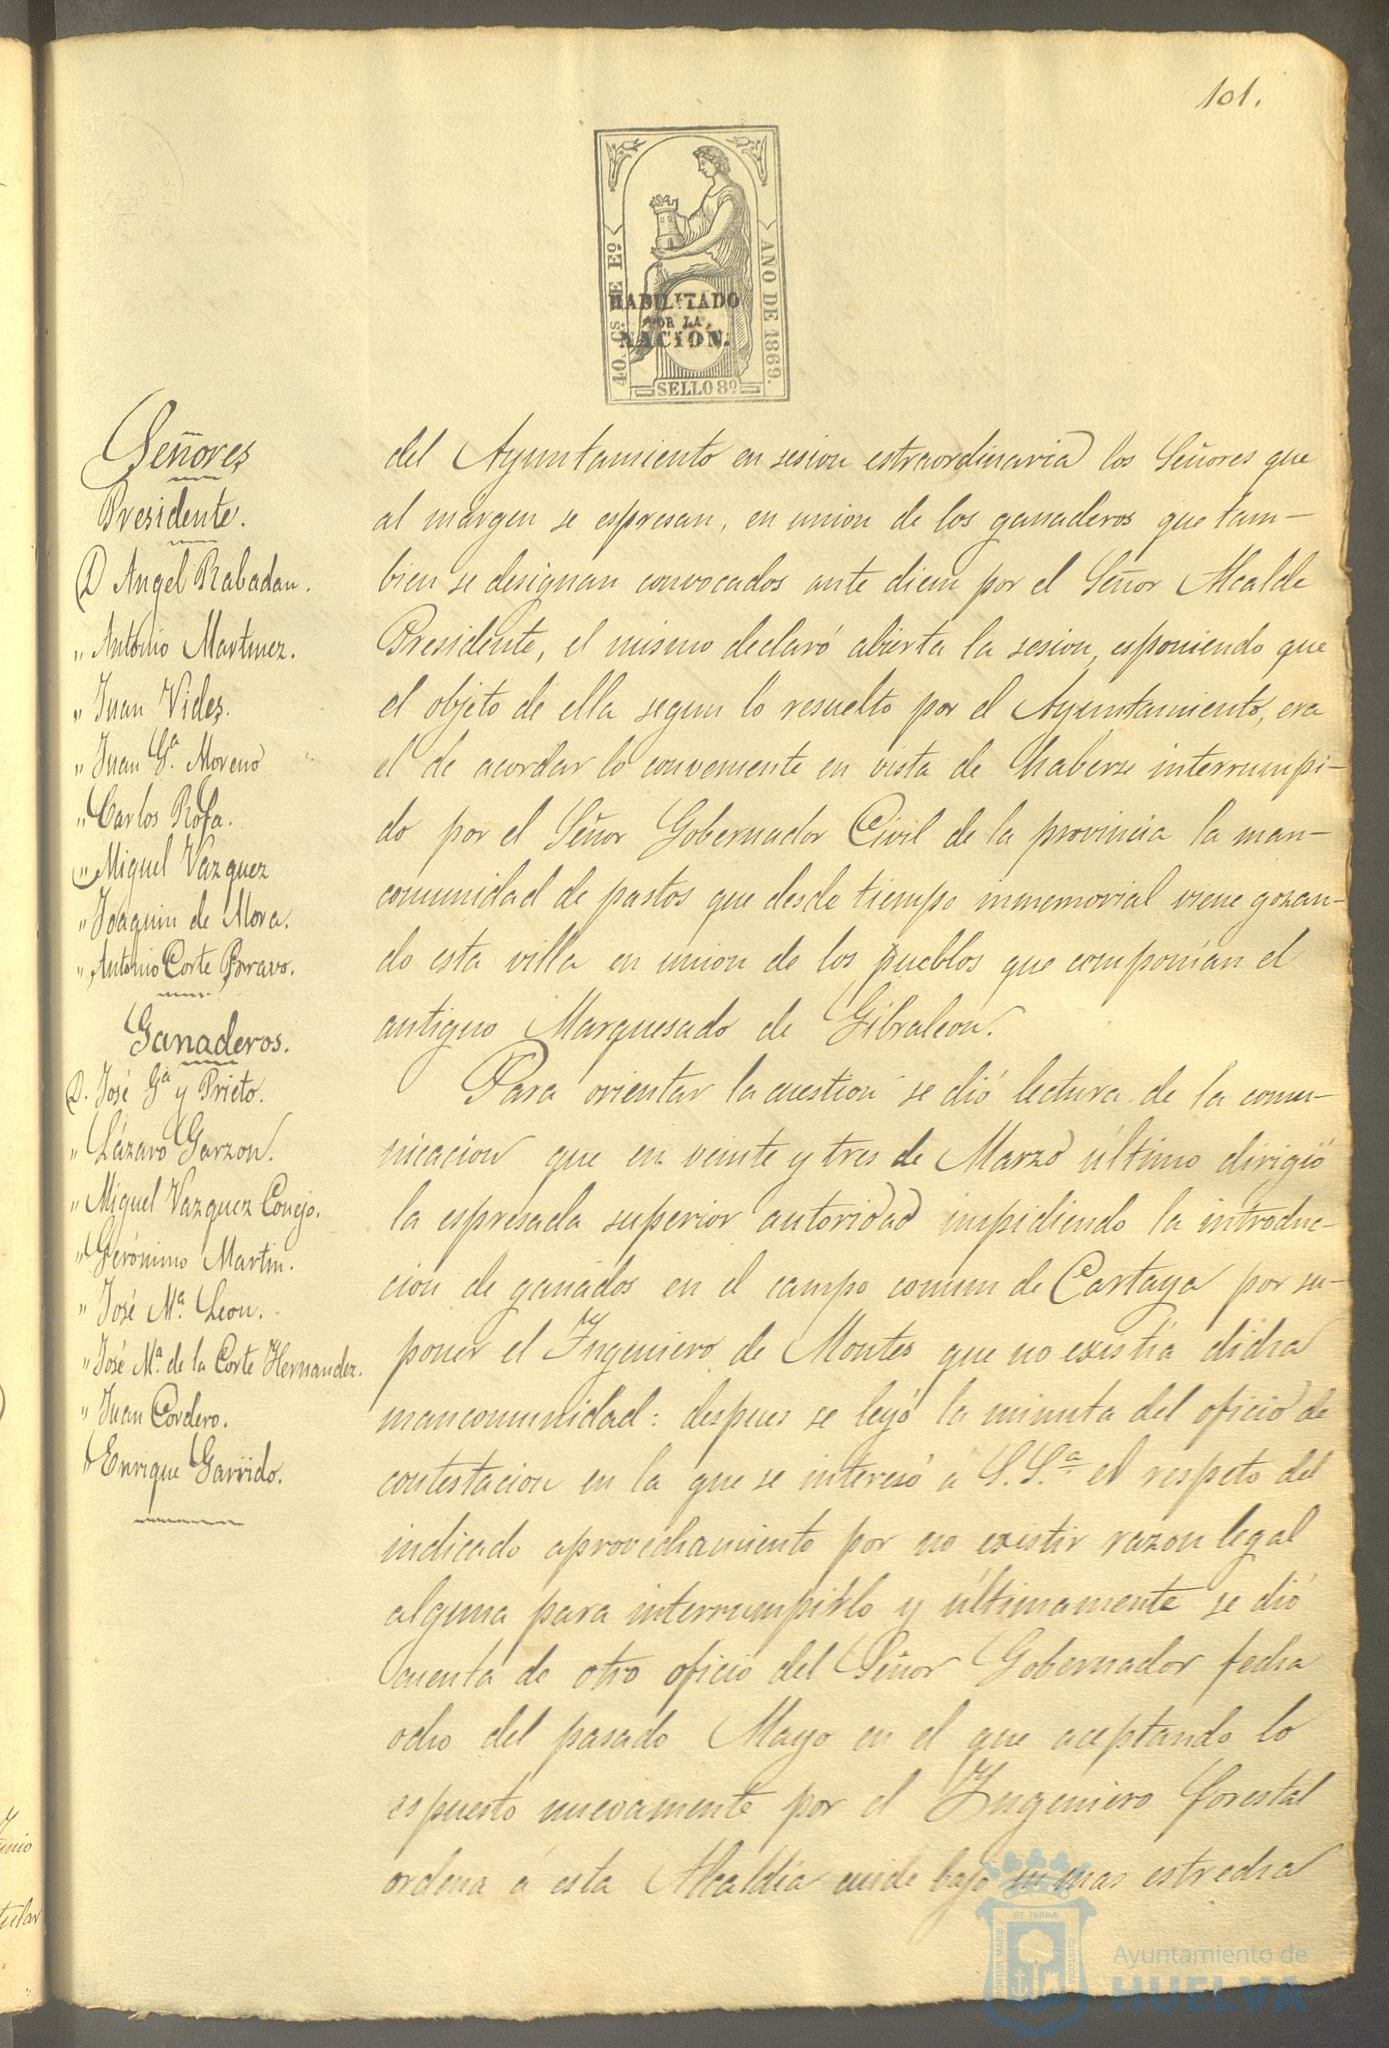 101.
40 Cs. DE Eº.
AÑO DE 1869.
HABILITADO
POR LA
NACION.
SELLO 8º
Señores
Presidente.
D Angel Rabadan.
" Antonio Martinez.
" Juan Vides.
" Juan Gª. Moreno
" Carlos Rofa.
" Miguel Vazquez
" Joaquin de Mora.
" Antonio Corte Bravo.
Ganaderos.
D. José Gª y Prieto.
" Lázaro Garzon.
" Miguel Vazquez Conejo.
" Gerónimo Martin.
" José Mª. Leon.
" José Mª. de la Corte Hernandez.
" Juan Cordero.
" Enrique Garrido.
del Ayuntamiento en sesion estraordinaria los Señores que
al márgen se espresan, en union de los ganaderos que tam-
bien se designan convocados ante diem por el Señor Alcalde
Presidente, el mismo declaró abierta la sesion, esponiendo que
el objeto de ella segun lo resuelto por el Ayuntamiento, era
el de acordar lo conveniente en vista de haberse interrumpi-
do por el Señor Gobernador Civil de la provincia la man-
comunidad de pastos que desde tiempo inmemorial viene gozan-
do esta villa en union de los pueblos que componían el
antiguo Marquesado de Gibraleon.
Para orientar la cuestion se dió lectura de la comu-
nicacion que en veinte y tres de Marzo último dirigió
la espresada superior autoridad impidiendo la introduc-
cion de ganados en el campo comun de Cartaya por su-
poner el Ingeniero de Montes que no existia dicha
mancomunidad: despues se leyó la minuta del oficio de
contestacion en la que se interesó á S.Sª. el respeto del
indicado aprovechamiento por no existir razon legal
alguna para interrumpirlo y últimamente se dió
cuenta de otro oficio del Señor Gobernador fecha
ocho del pasado Mayo en el que aceptando lo
espuesto nuevamente por el Ingeniero forestal
ordena á esta Alcaldía cuide bajo su mas estrecha
PORTUS MARIS
ET TERRÆ
CUSTODIA
Ayuntamiento de
HUELVA